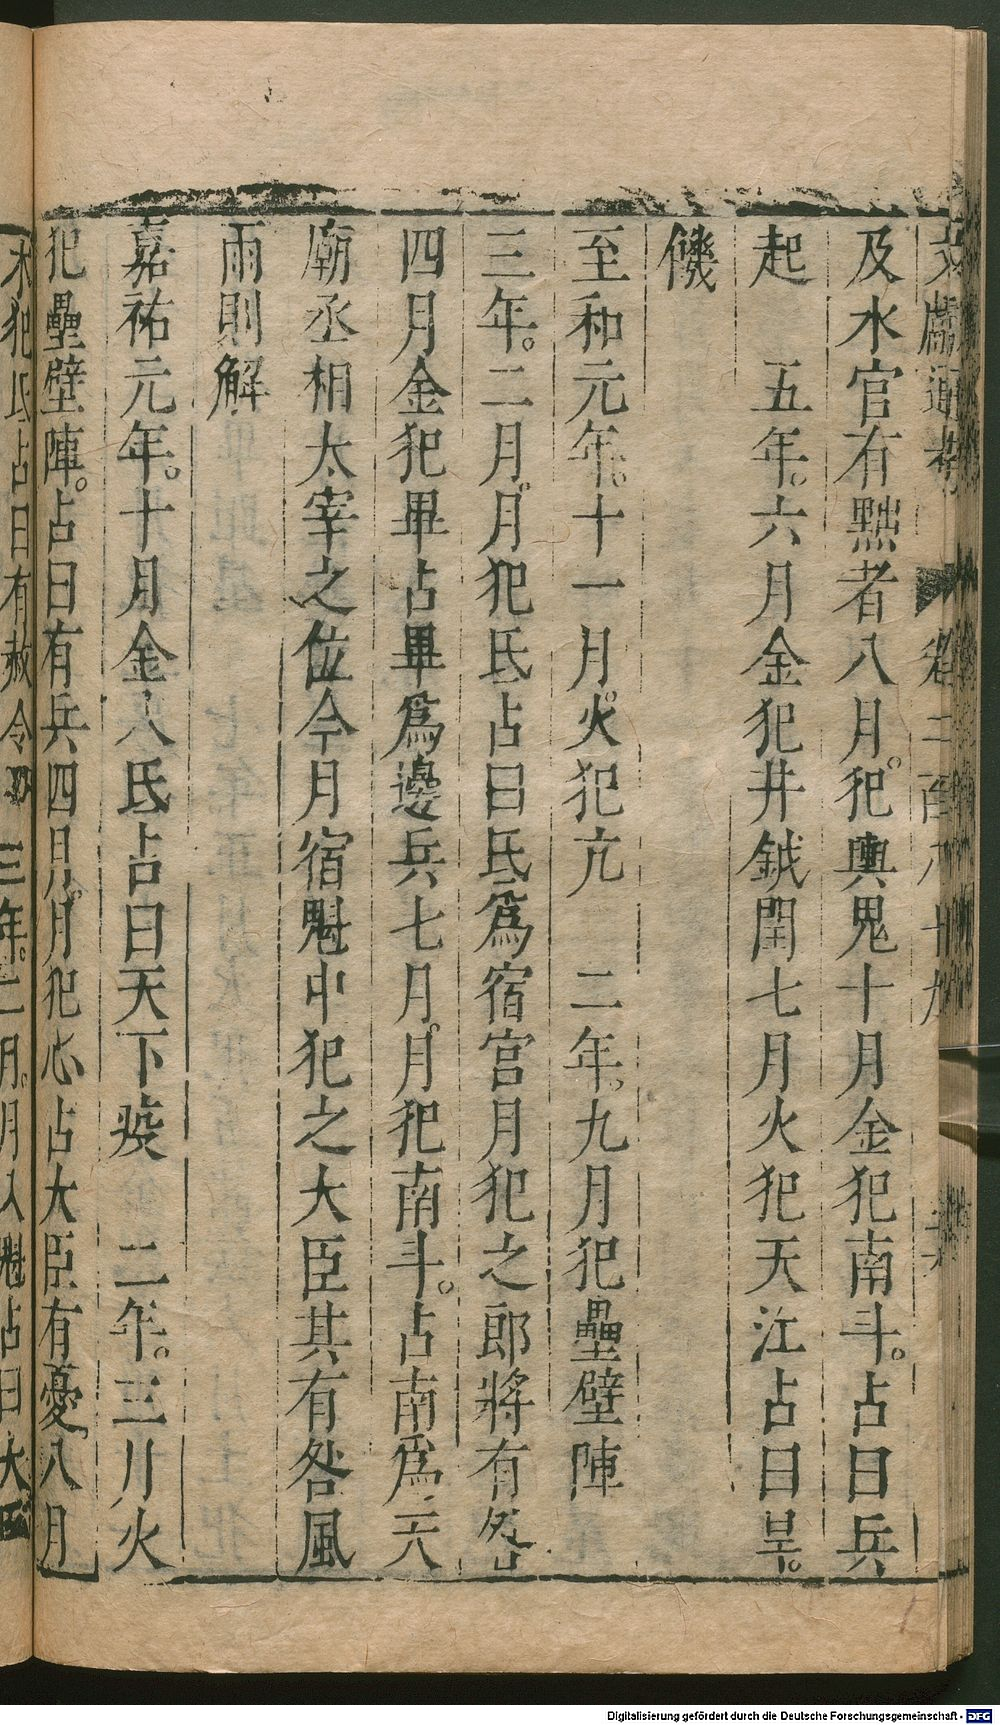 文獻通考 卷二百八十九
及水官有黜者八月。犯輿鬼十月金犯南斗。占曰兵
起 五年。六月金犯井鉞閏七月火犯天江占曰旱。
饑
至和元年。十一月。火犯亢 二年。九月犯壘壁陣
三年。二月。月犯氐占曰氐爲宿宮月犯之郎將有咎
四月金犯畢占畢爲邊兵七月。月犯南斗。占南爲天
廟丞相太宰之位今月宿魁中犯之大臣其有咎風
雨則解
嘉祐元年。十月金入氐占曰天下疫 二年。三月火
犯壘壁陣。占曰有兵四月。月犯心占大臣有憂八月
木犯氐占曰有赦令 三年。二月。月入魁占曰大臣
Digitalisierung gefördert durch die Deutsche Forschungsgemeinschaft - DFG